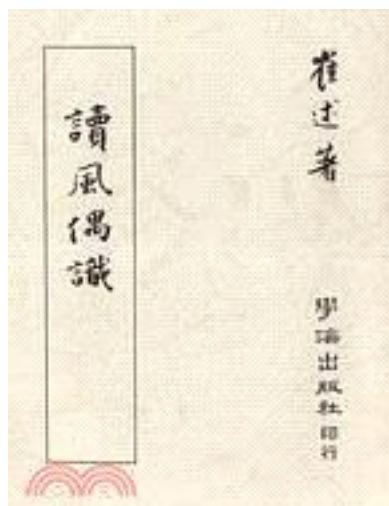 崔述著
讀風偶識
學海出版社印行